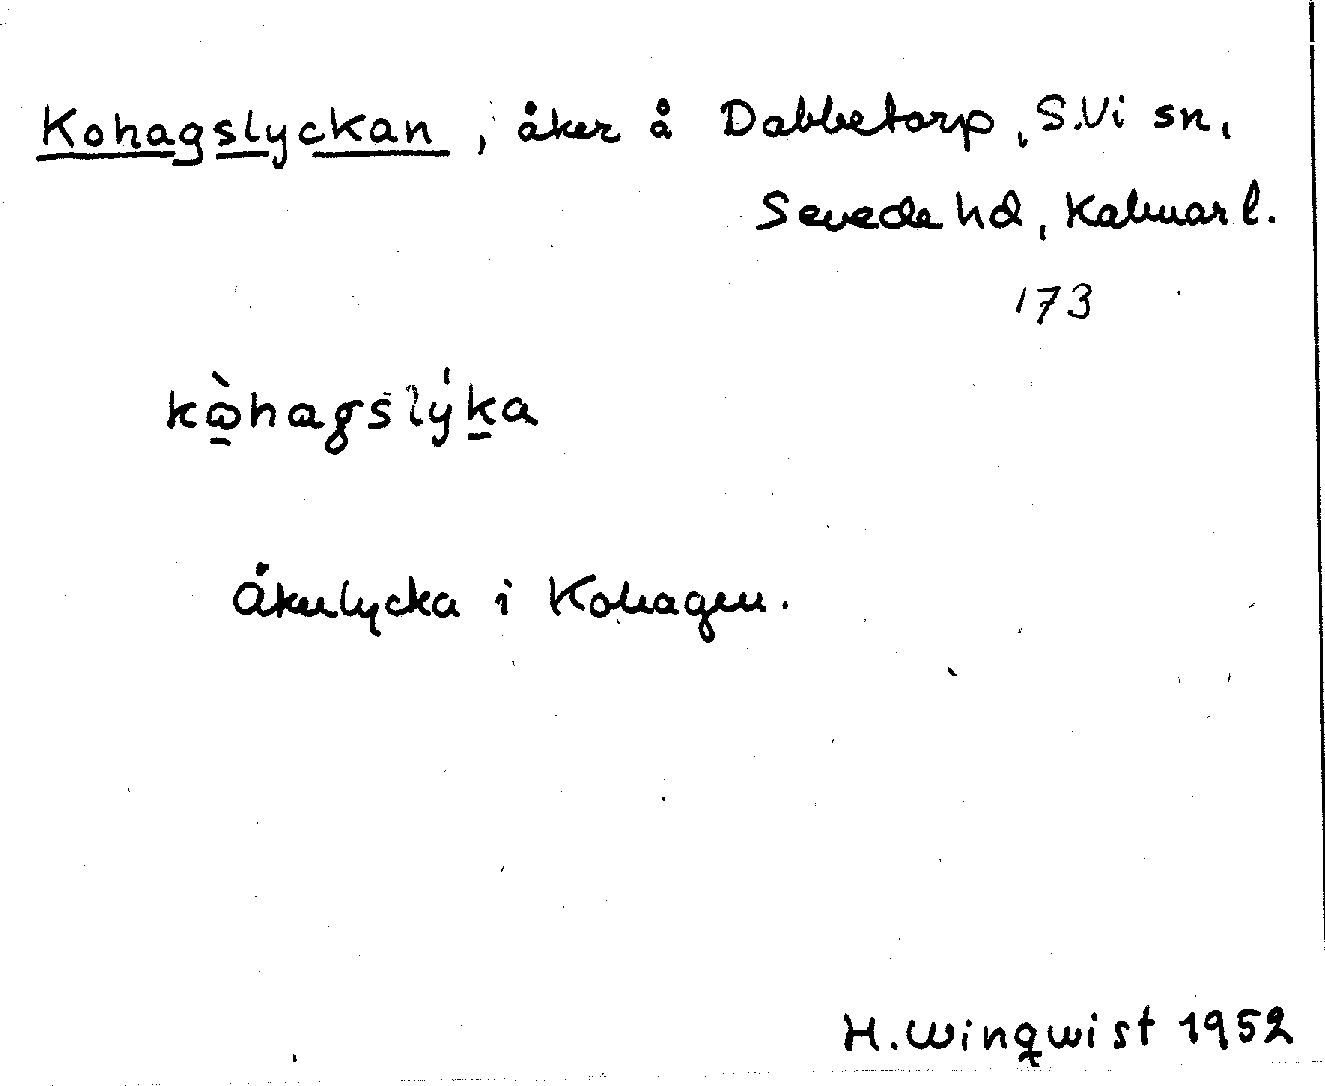 Kohagslyckan, åker å Dabbetorp, S.Vi sn,
Sevede hd, Kalmar l.
173
kὼ̱hagslýḵa
Åkerlycka i Kohagen.
H. Winqwist 1952